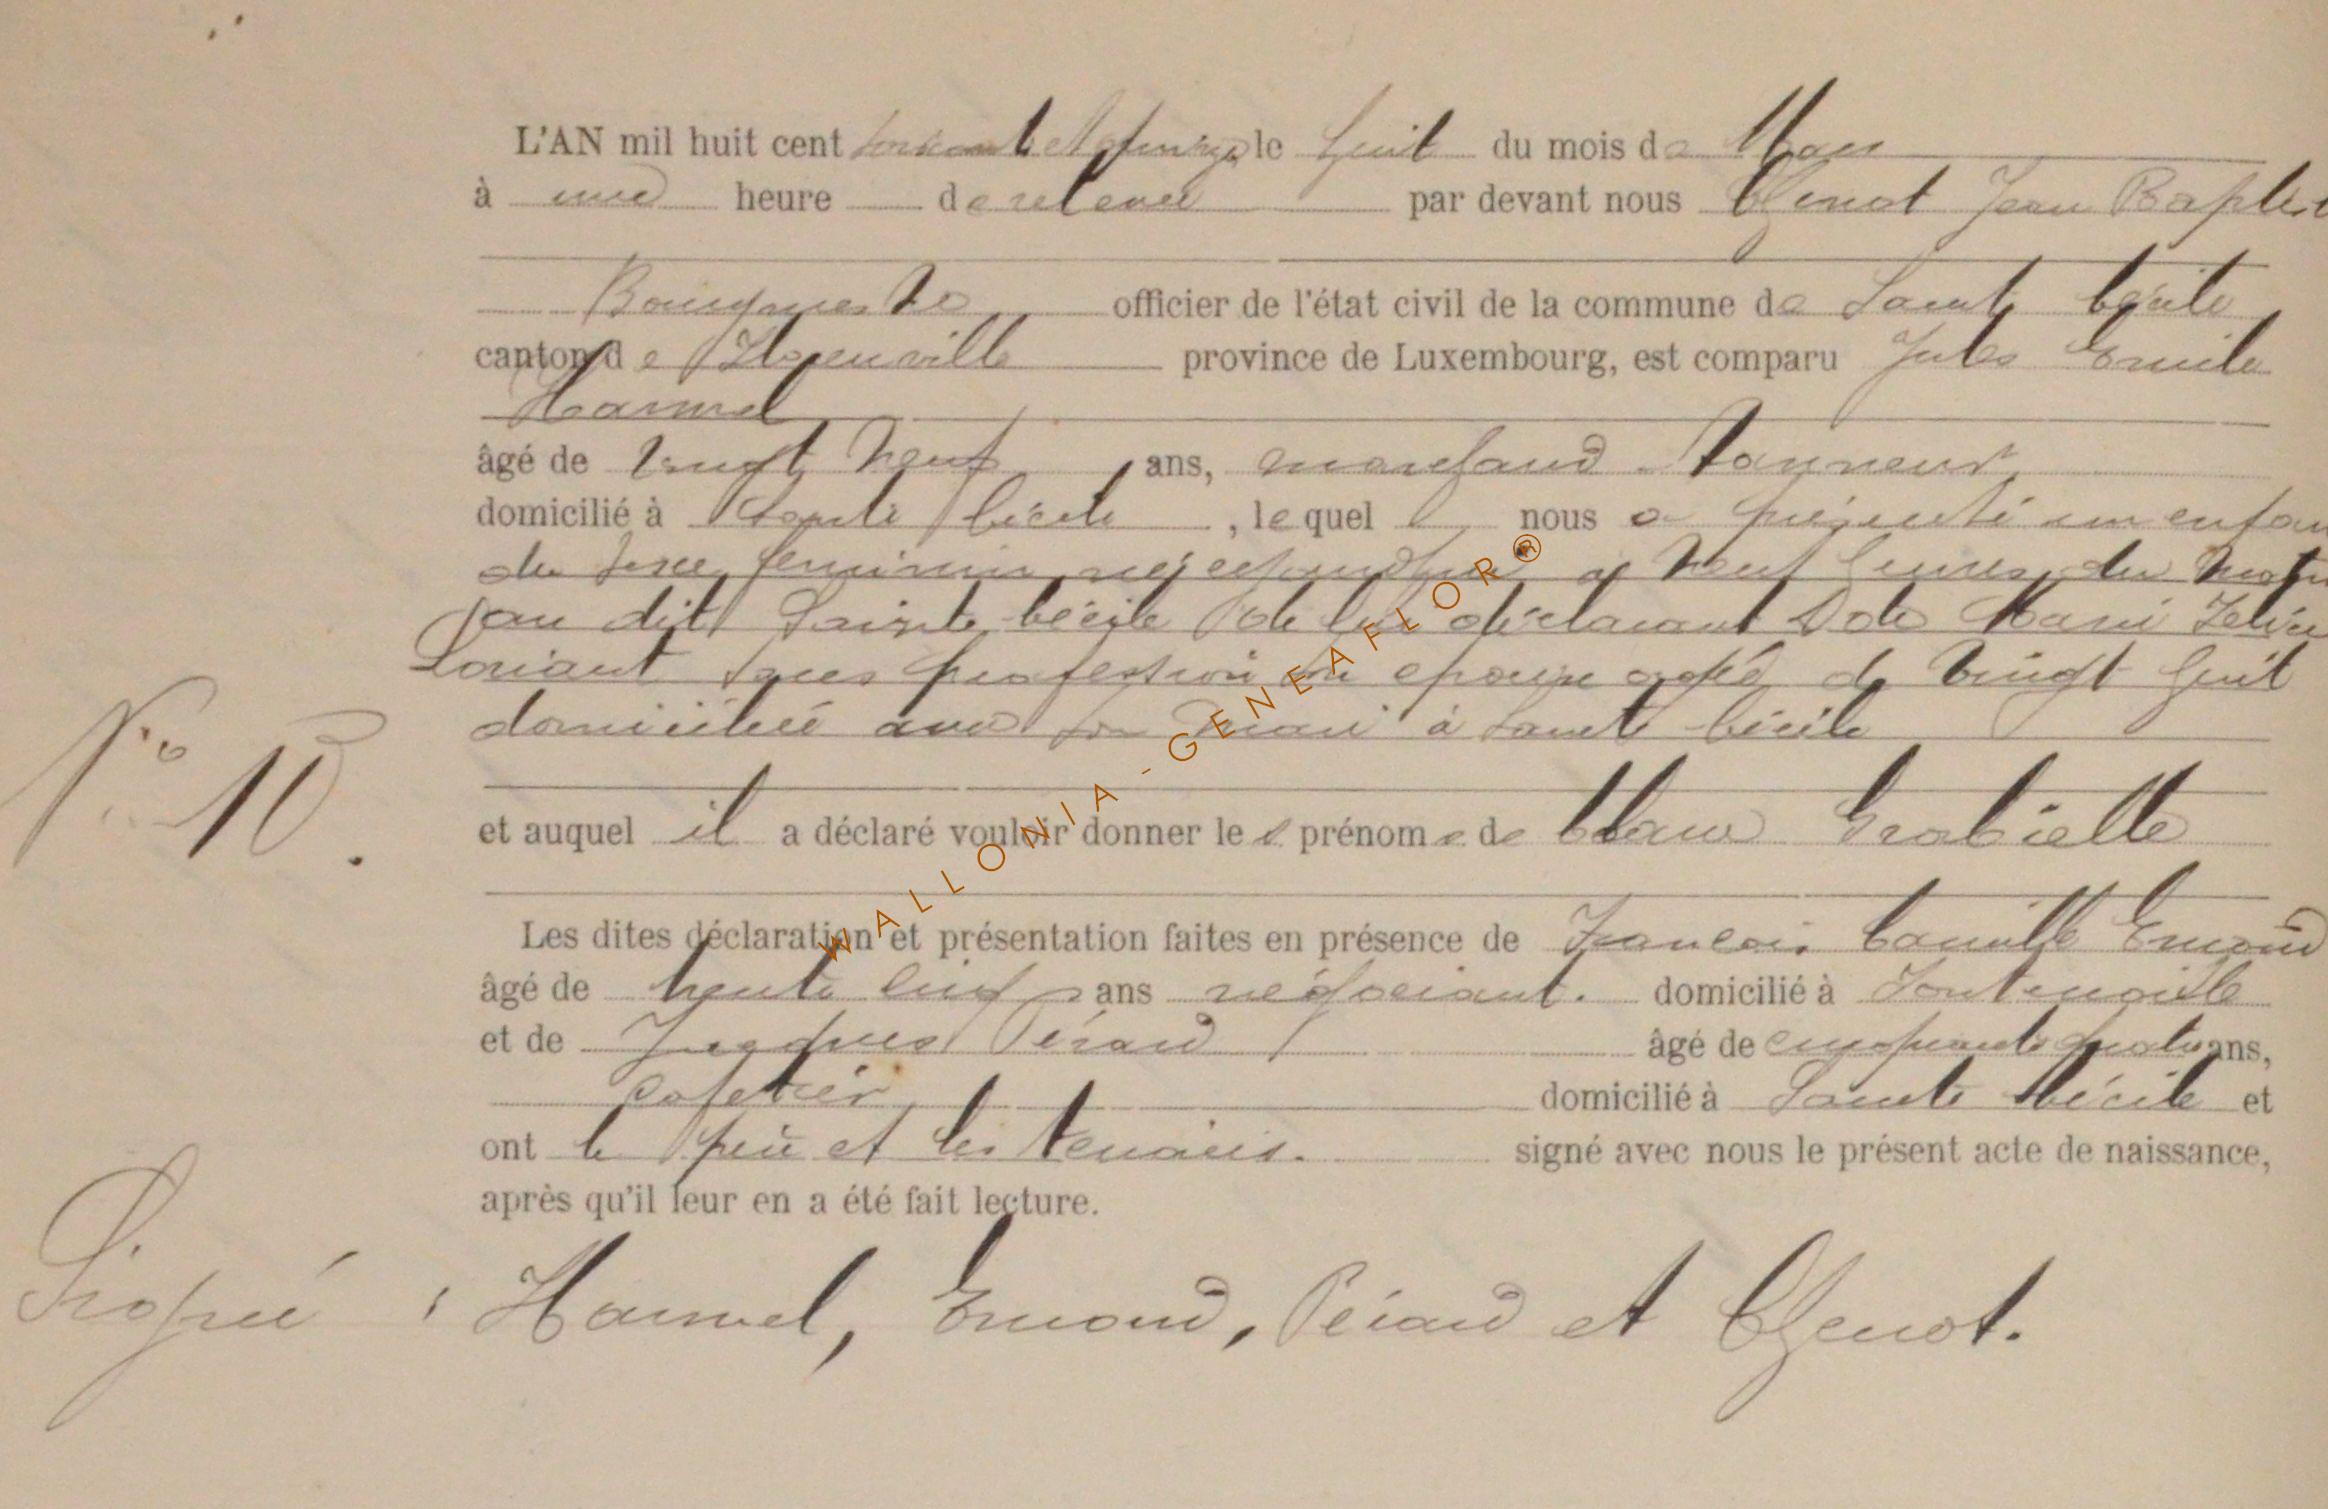 L'AN mil huit cent soixante et quinze le huit du mois de Mars
à une heure de relevée par devant nous Thenot Jean Baptiste
Bourgmestre officier de l'état civil de la commune de Sainte Cécile
canton de Florenville province de Luxembourg, est comparu Jules Emile
Hannel
âgé de vingt neuf ans, marchand tanneur
domicilié à Sainte Cécile, lequel nous a présenté un enfan
du sexe féminin né aujourd'hui à neuf heures du matin
au dit Sainte Cécile de lui déclarant & de Marie
Loriant sans profession son épouse agée de vingt huit
domiciliée avec son mari à Sainte Cécile
N° 10.
et auquel il a déclaré vouloir donner les prénoms de Gabrielle
Les dites déclaration et présentation faites en présence de François Camille Emond
âgé de trente cinq ans négociant. domicilié à Fontenoille
et de Jacques Pérard âgé de cinquante quatre ans,
cafetier domicilié à Sainte Cécile et
ont le père et les témoins. signé avec nous le présent acte de naissance,
après qu'il leur en a été fait lecture.
Hannel, Emond, Pérard et Thenot.
WALLONIA - GENEAFLOR®